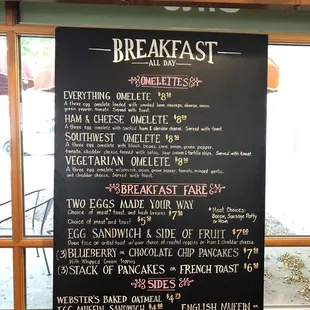 BREAKFAST
ALL DAY
OMELETTES
EVERYTHING OMELETE $8
A three egg omelete loaded with smoked ham, sausage, cheese, onion,
green pepper, tomato. Served with toast.
HAM & CHEESE OMELETE $8
A three egg omelete with smoked ham & cheddar cheese. Served with toast.
SOUTHWEST OMELETE $8
A three egg omelete with black beans, corn, onion, green pepper,
tomato, cheddar cheese, topped with salsa, sour cream & tortilla chips. Served with toast.
VEGETARIAN OMELETE $8
A three egg omelete with onion, green pepper, tomato, minced garlic,
and cheddar cheese. Served with toast.
BREAKFAST FARE
TWO EGGS MADE YOUR WAY
Choice of meat, toast, and hash browns $7
Choice of meat and toast $5
* Meat Choices:
Bacon, Sausage Patty
or Ham
EGG SANDWICH & SIDE OF FRUIT $7
Oven face on grilled toast w/ your choice of roasted veggies or ham & cheddar cheese
(3) BLUEBERRY or CHOCOLATE CHIP PANCAKES $7
With Whipped Cream Topping
(3) STACK OF PANCAKES or FRENCH TOAST $6
SIDES
WEBSTER'S BAKED OATMEAL $4
EGG MUFFIN SANDWICH $4
ENGLISH MUFFIN or